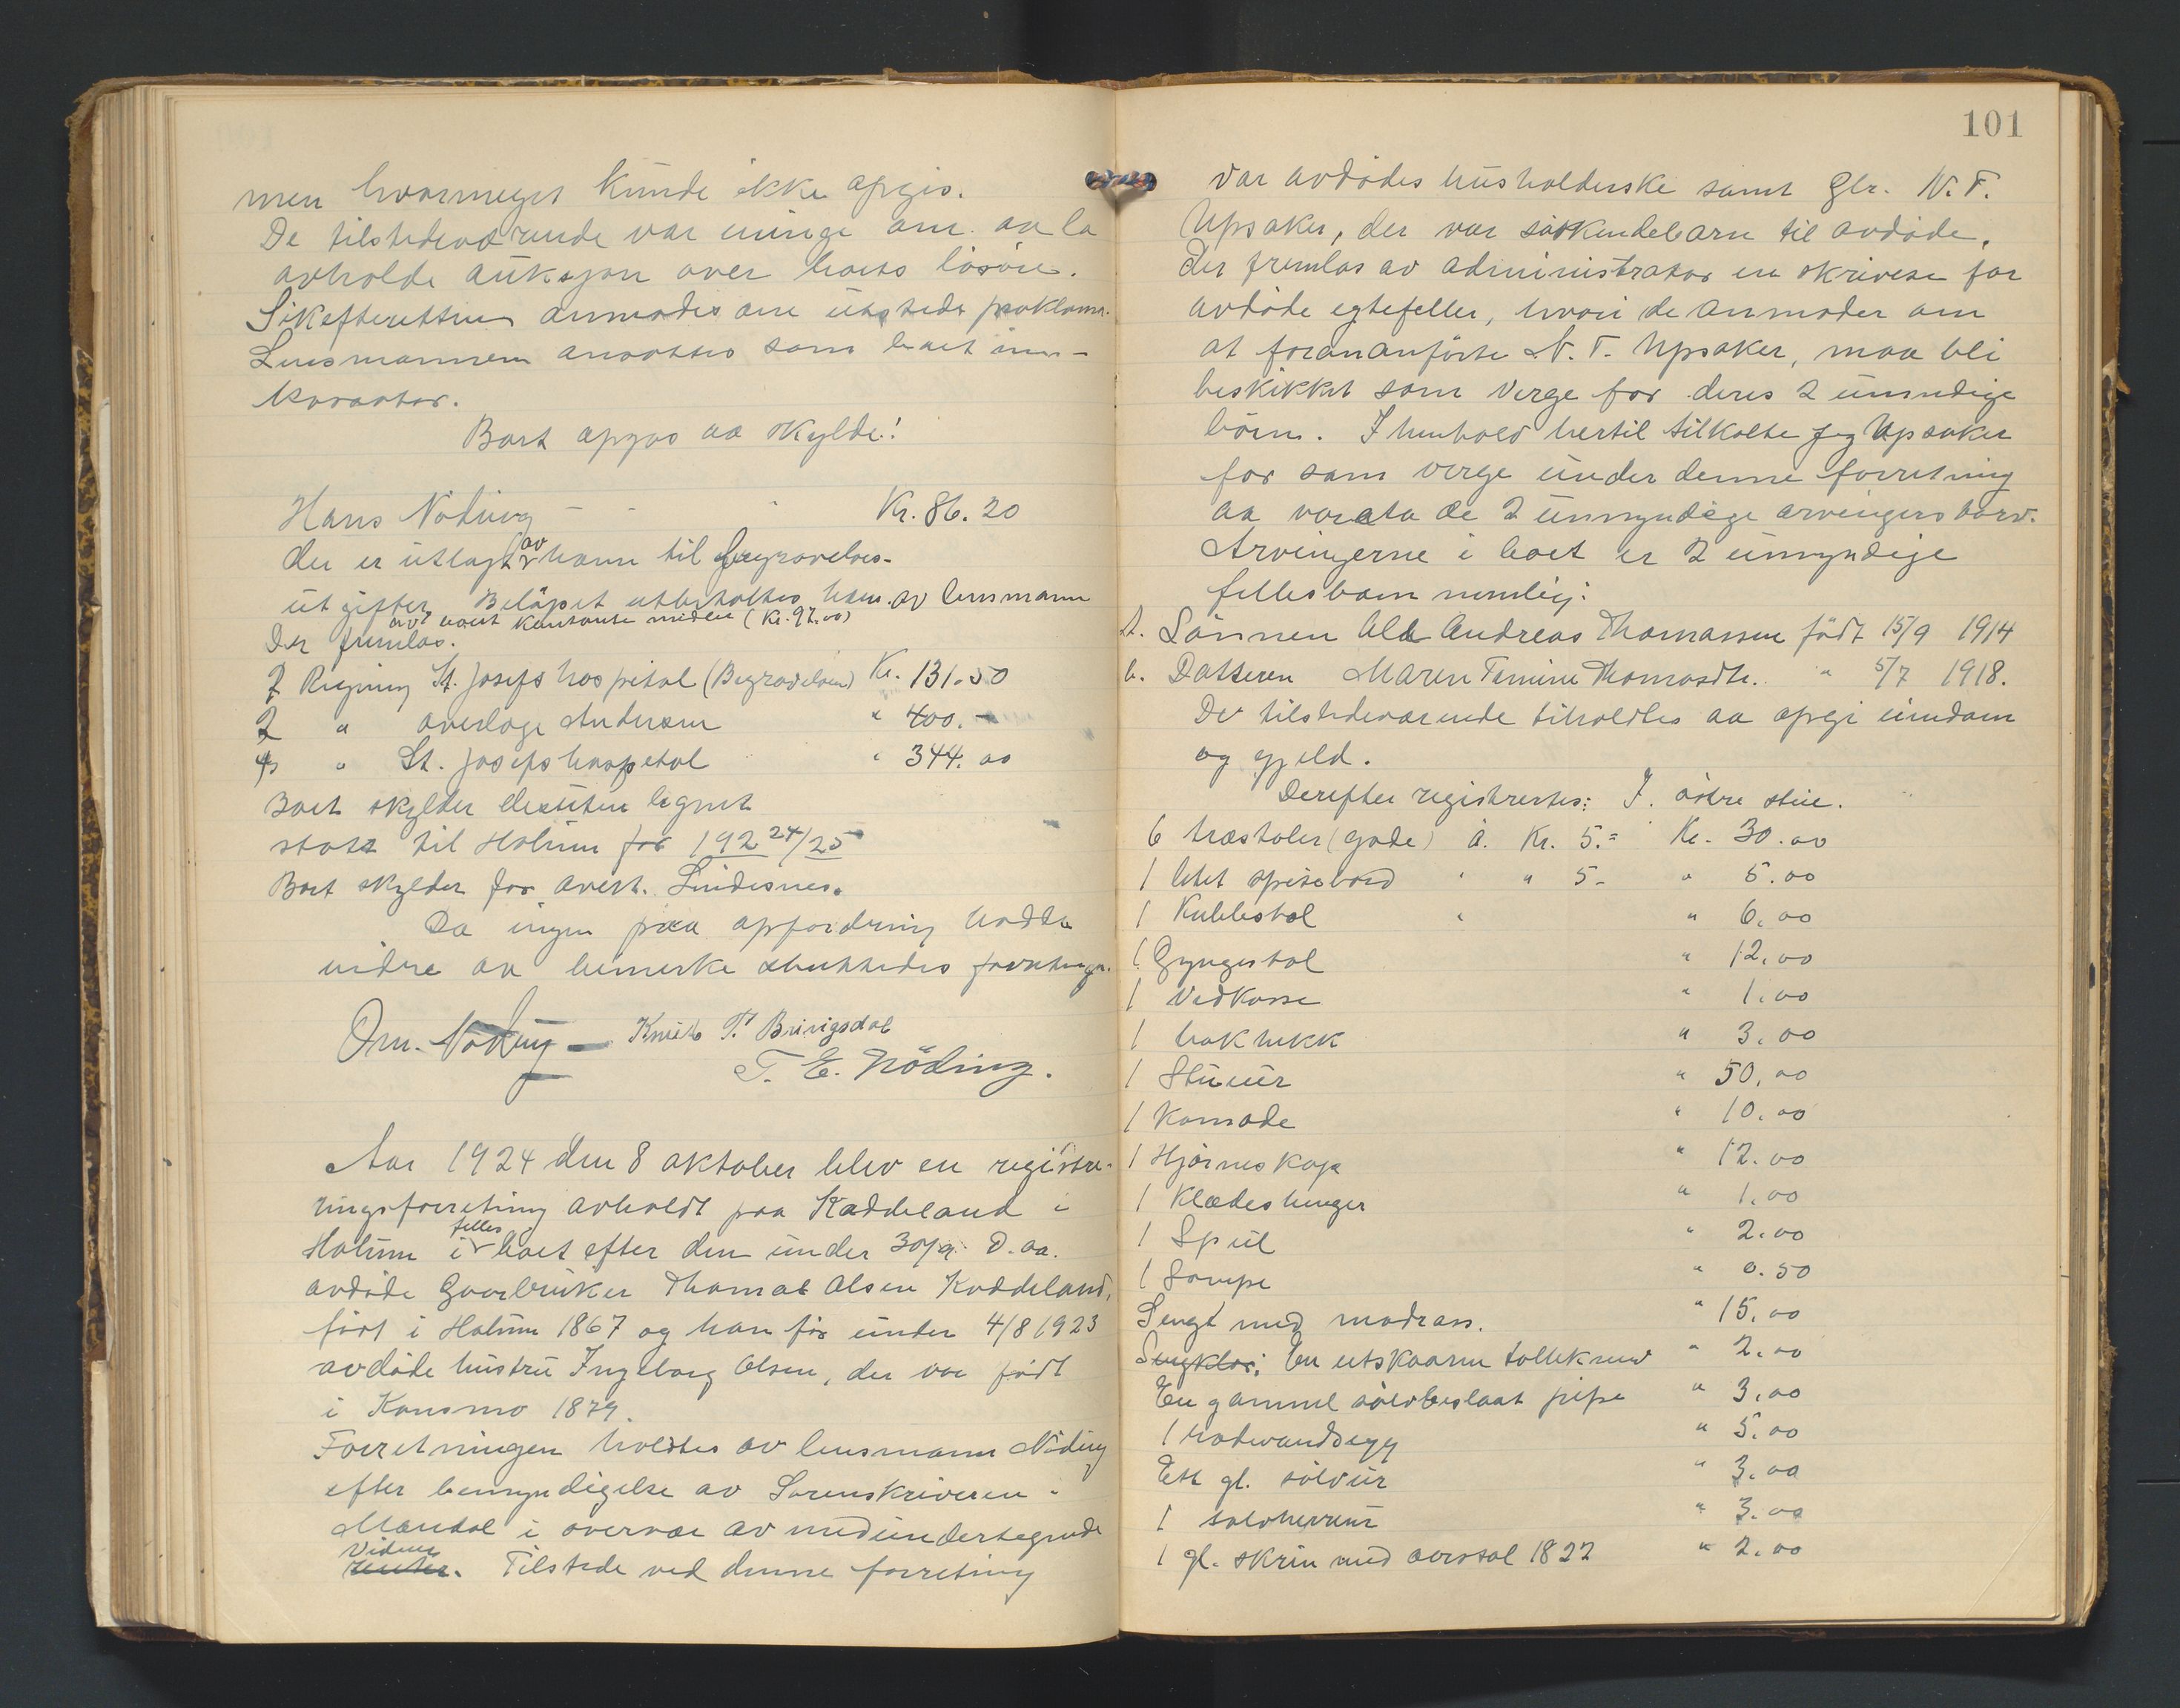 men hvormeget kunde ikke opgis.
De tilstedeværende var enige om aa la
avholde auksjon over boets lösöre.
Skifteretten anmodes om utstede proklama.
Lensmannen ansattes som boets in-
kassator.
Boet opgas aa skylde!
Hans Nöding - - Kr. 86.20
der er utlagt av ham til begravelses-
utgifter Belöpet utbetaltes ham av lensmann
av boets kontante midler (Kr. 97.00)
Der fremlas.
2 Regning St. Josefs hospital (Begravelsen) Kr. 131.50
2 " overlæge Andersen " 400.-
4 " St. Josefs hospital " 344.00
Boet skylder desuten lignet
skatt til Holum for 1924/25
Boet skylder for avert. Lindesnes.
Da ingen paa opfordring hadde
videre aa bemerke sluttedes forretningen.
Om. Nöding - Knut T. Bringsdal
T. E. Nöding.
Aar 1924 den 8 oktober blev en registre-
ringsforretning avholdt paa Kaddeland i
Holum i felles boet efter den under 30/9 d. aa.
avdöde Gaarbruker Thomas Olsen Kaddeland,
födt i Holum 1867 og han för under 4/8 1923
avdöde hustru Ingeborg Olsen, der var födt
i Konsmo 1879.
Forretningen holdtes av lensmann Nöding
efter bemyndigelse av Sorenskriveren i
Mandal i overvær av medundertegnede
vidner. Tilstede ved denne forretning
101
var avdödes husholderske samt Gbr. N. T.
Upsaker, der var söskendebarn til avdöde.
Der fremlas av administrator en skrivese for
avdöde egtefeller, hvori de anmoder om
at forananförte N. T. Upsaker, maa bli
beskikket som verge for deres 2 umyndige
börn. I henhold hertil tilkalte jeg Upsaker
for som verge under denne forretning
aa vareta de 2 umyndige arvingers tarv.
Arvingerne i boet er 2 umyndige
fellesbarn nemlig:
a. Sönnen Ole Andreas Thomassen födt 15/9 1914
b. Datteren Maren Temine Thomasdtr. " 5/7 1918.
De tilstedeværende tilholdtes aa opgi eiendom
og gjeld.
Derefter registrertes: I. östre stue.
6 træstoler (gode) á. Kr. 5.= Kr. 30.00
1 litet spisebord " " 5- " 5.00
1 Kubbestol " " 6.00
1 Gyngestol " 12.00
1 Vedkasse " 1.00
1 bokhekk " 3.00
1 Stueur " 50.00
1 Komode " 10.00
1 Hjörneskap " 12.00
1 Klædeshenger " 1.00
1 Speil " 2.00
1 Lampe " 0.50
Sengt med madrass. " 15.00
Sengklær; En utskaaren tollekniv " 2.00
En gammel sölvbeslaat pipe " 3.00
1 hodevandsegg " 5.00
Ett gl. sölvur " 3.00
1 sölvherreur " 3.00
1 gl. skrin med aarstal 1822 " 2.00